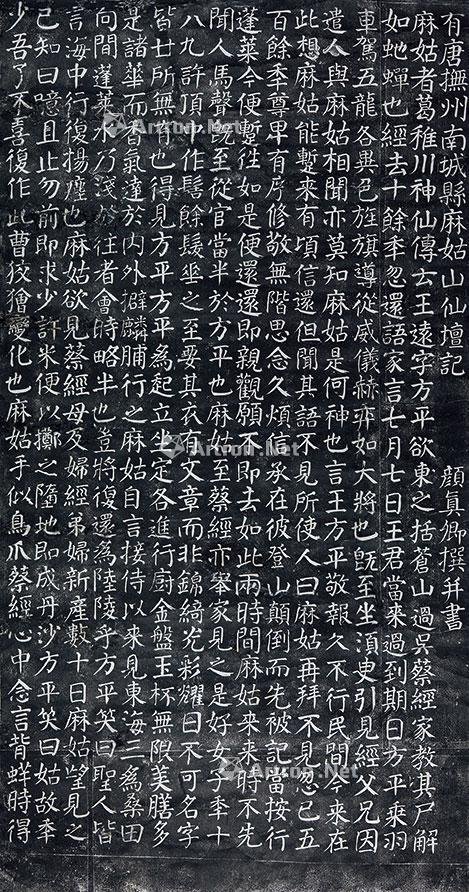 有唐撫州南城縣麻姑山仙壇記 顏真卿撰并書
麻姑者葛稚川神仙傳云王遠字方平欲東之括蒼山過吳蔡經家教其尸解
如虵蟬也經去十餘年忽還語家言七月七日王君當來過到期日方平乘羽
車駕五龍各異色旌旗導從威儀赫弈如大將也既至坐須臾引見經父兄因
遣人與麻姑相聞亦莫知麻姑是何神也言王方平敬報久不行民間今來在
此想麻姑能蹔來有頃信還但聞其語不見所使人曰麻姑再拜不見忽已五
百餘年尊卑有序修敬無階思念久煩信承在彼登山顛倒而先被記當按行
蓬萊今便蹔往如是便還還即親觀願不即去如此兩時間麻姑來來時不先
聞人馬聲既至從官當半於方平也麻姑至蔡經亦舉家見之是好女子年十
八九許頂中作髻餘髮垂之至要其衣有文章而非錦綺光彩耀日不可名字
皆世所無有也得見方平方平為起立坐定各進行廚金盤玉杯無限美膳多
是諸華而香氣達於內外擗麟脯行之麻姑自言接侍以來見東海三為桑田
向間蓬萊水乃淺於往者會時略半也豈將復還為陸陵乎方平笑曰聖人皆
言海中行復揚塵也麻姑欲見蔡經母及婦經弟婦新產數十日麻姑望見之
已知曰噫且止勿前即求少許米便以擲之墮地即成丹沙方平笑曰姑故年
少吾了不喜復作此曹狡獪變化也麻姑手似鳥爪蔡經心中念言背蛘時得
Artron.Net
Artron.Net
Artron.Net
Artron.Net